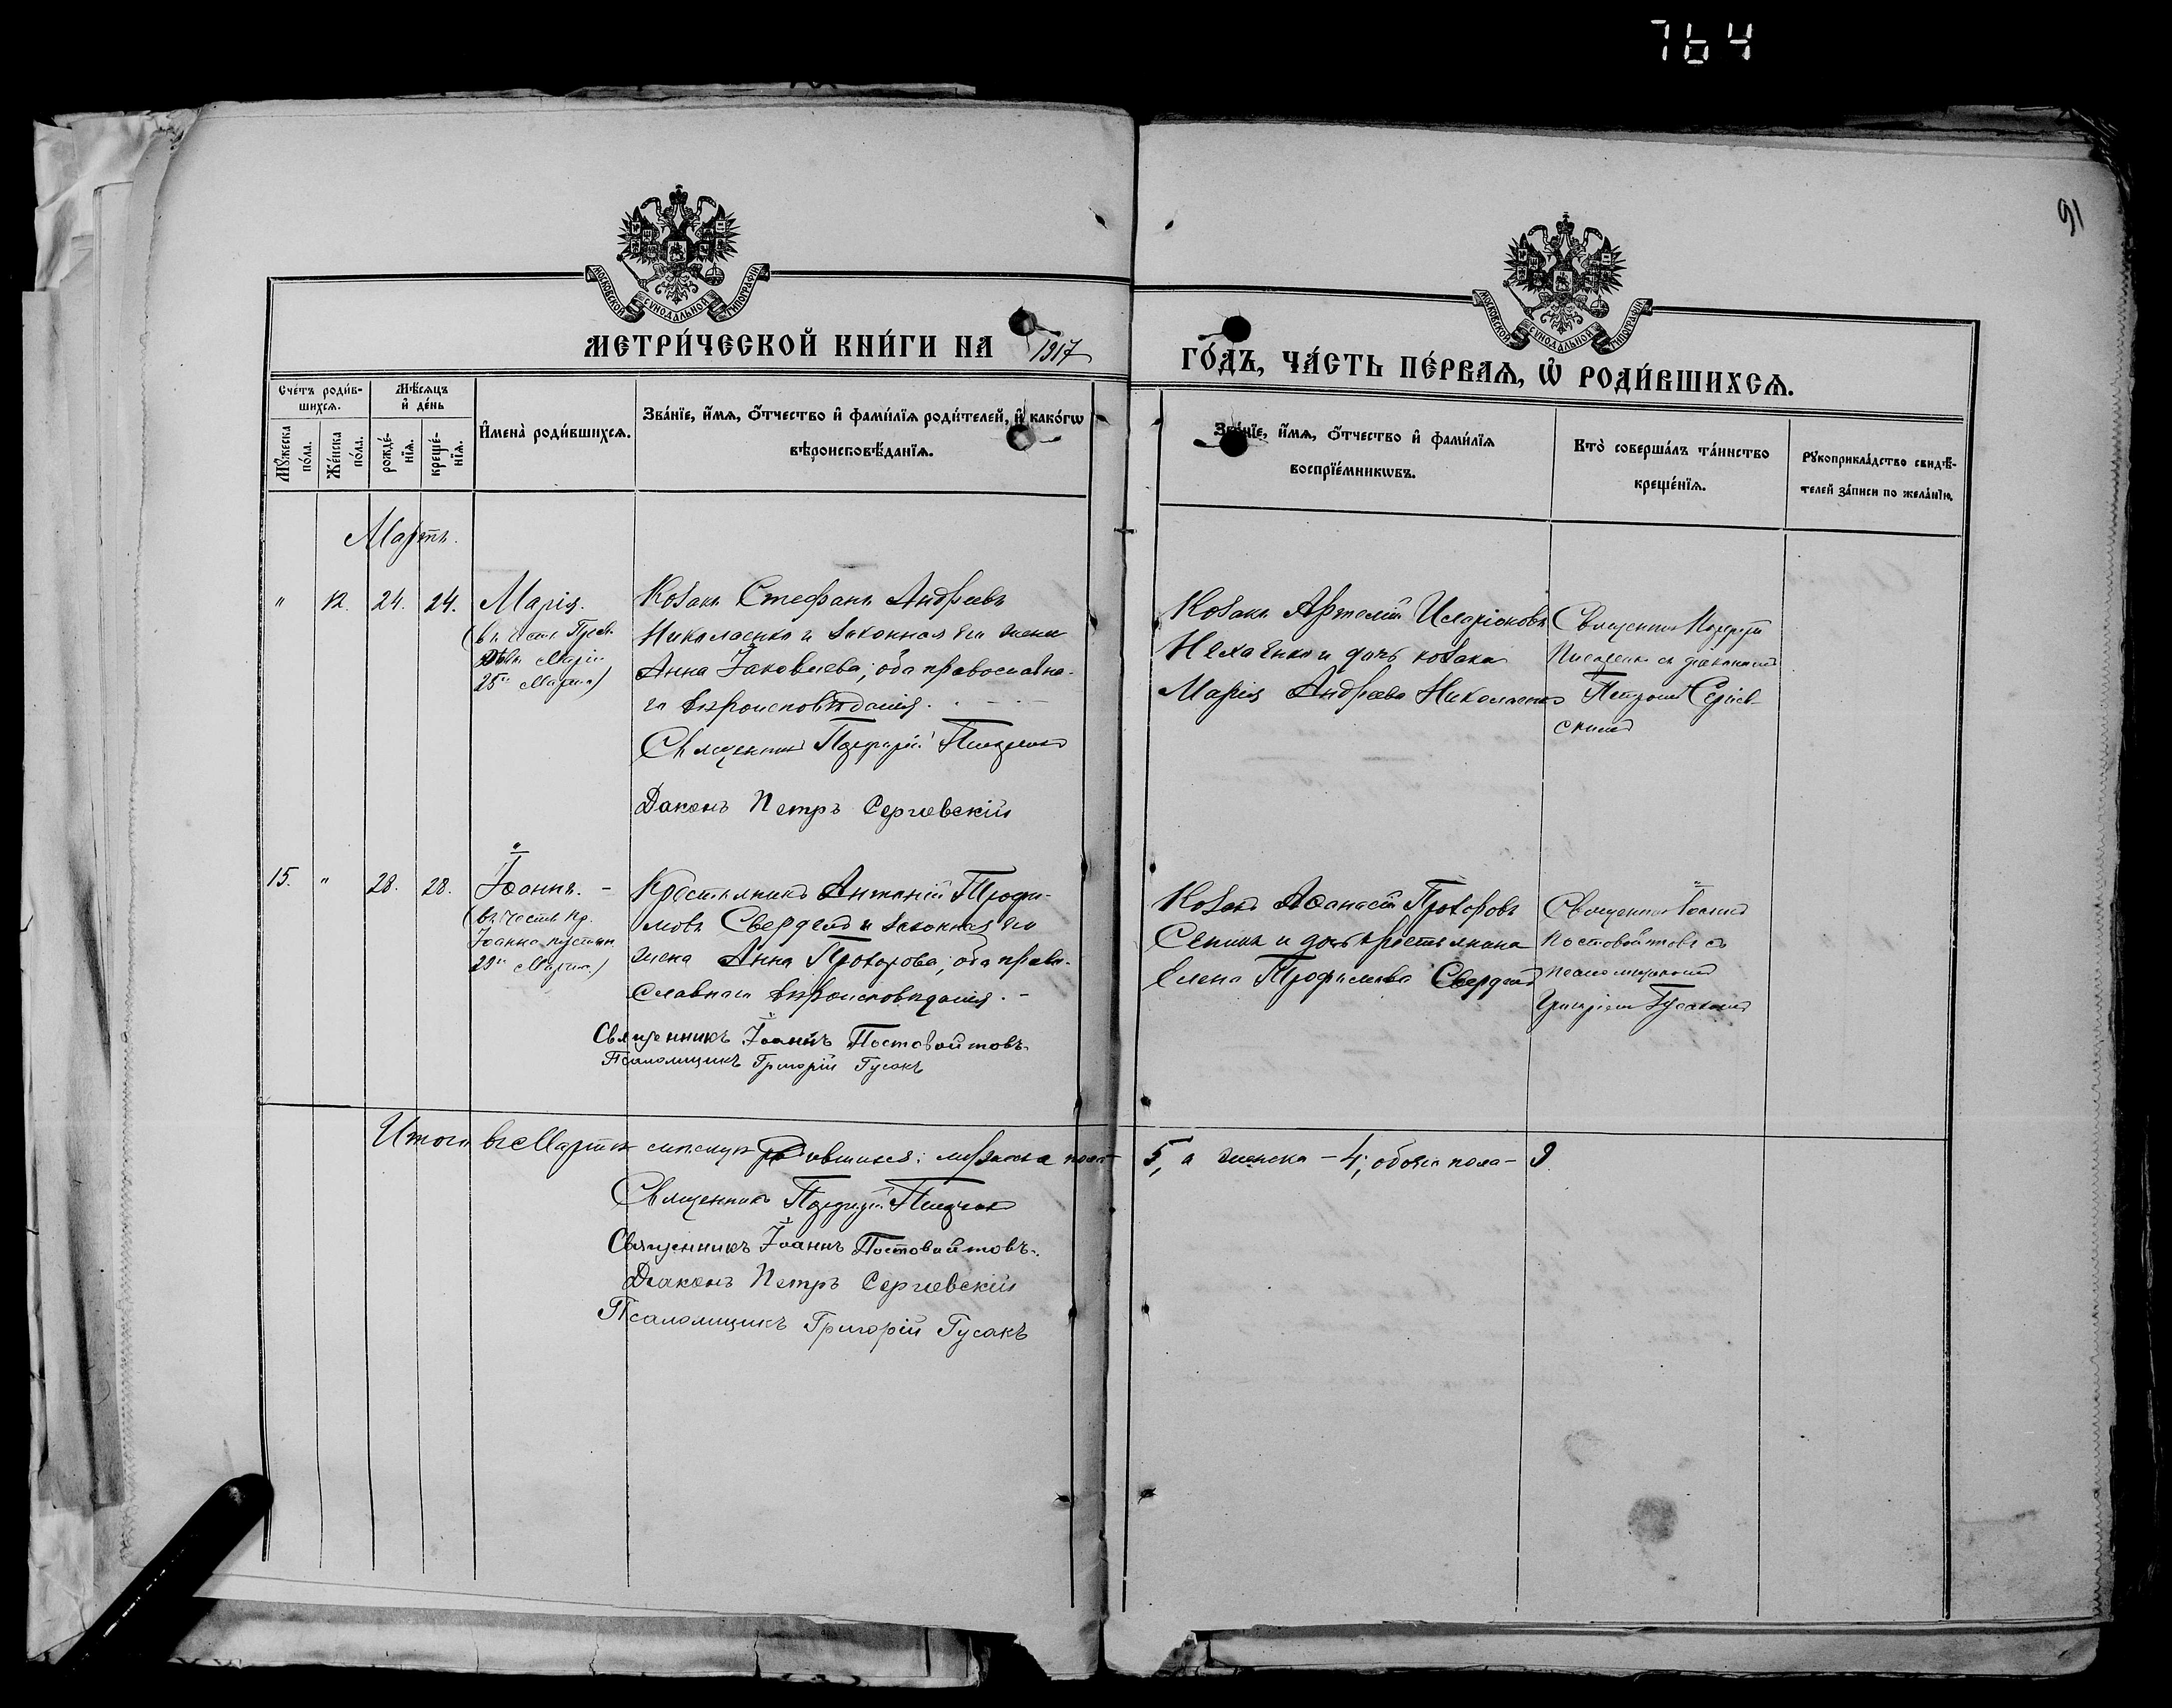 764
91
МОСКОВСКОЙ СѴНОДАЛЬНОЙ ТИПОГРАФІИ
МОСКОВСКОЙ СѴНОДАЛЬНОЙ ТИПОГРАФІИ
МЕТРИ́ЧЕСКОЙ КНИ́ГИ НА 1917
ГО́ДЪ, ЧА́СТЬ ПЕ́РВАѦ, Ѡ҆ РОДИ́ВШИХСѦ.
Сче́тъ роди́в-
шихсѧ.
Мѣ́сѧцъ
и҆ де́нь
Мꙋ́жеска
по́ла.
Же́нска
по́ла.
рожде́-
нїѧ.
креще́-
нїѧ.
И҆мена̀ роди́вшихсѧ.
Зва́нїе, и҆́мѧ, ѻ҆́тчество и҆ фами́лїѧ роди́телей, и҆ како́гѡ
вѣроисповѣ́данїѧ.
Зва́нїе, и҆́мѧ, ѻ҆́тчество и҆ фами́лїѧ
воспрїе́мникѡвъ.
Кто̀ соверша́лъ та́инство
креще́нїѧ.
Рꙋкоприкла́дство свидѣ́-
телей за́писи по жела́нїю.
Мартъ.
" 12. 24. 24. Марія.
(въ честь Пресв.
Дѣвы Маріи
25го Марта)
Козакъ Стефанъ Андреевъ
Николаенко и законная его жена
Анна Іаковлева; оба православна-
го вѣроисповѣданія.
Священникъ
Діаконъ Петръ Сергіевскій
Козакъ Артемій Иларіоновъ
и дочь козака
Марія Андреева Николаенко
Священникъ
съ діакономъ
Петромъ Сергіев-
скимъ
15. " 28. 28. Іоаннъ.
(въ честь пр.
Іоанна пустын.
29го Марта)
Крестьянинъ Антоній Трофи-
мовъ и законная его
жена Анна Прохорова; оба право-
славнаго вѣроисповѣданія.
Священникъ Іоаннъ Постовойтовъ.
Псаломщикъ Григорій Гусакъ
Козакъ Аѳанасій Прохоровъ
и дочь крестьянина
Елена Трофимова
Священникъ Іоаннъ
Постовойтовъ съ
псаломщикомъ
Григоріемъ Гусакомъ
Итого въ Мартѣ мѣсяцѣ родившихся: мужеска пола —
5, а женска — 4; обоего пола — 9.
Священникъ
Священникъ Іоаннъ Постовойтовъ.
Діаконъ Петръ Сергіевскій
Псаломщикъ Григорій Гусакъ